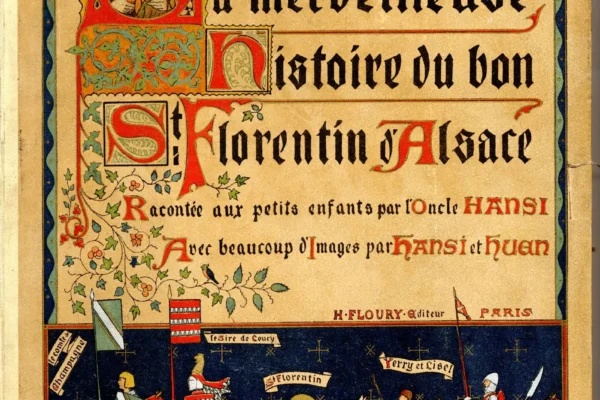 La merveilleuse
histoire du bon
St. Florentin d'Alsace
Racontée aux petits enfants par l'Oncle HANSI
Avec beaucoup d'Images par Hansi et Huen
H. FLOURY. Editeur PARIS
le comte
Champagne
le Sire de Coucy
St Florentin
Yerry et Lisel